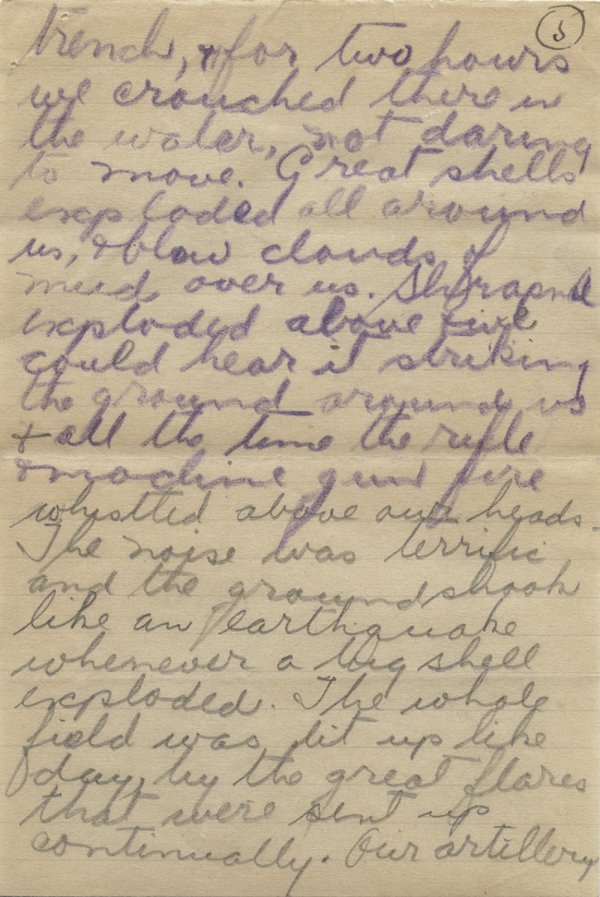 5
trench, & for two hours
we crouched there in
the water, not daring
to move. Great shells
exploded all around
us, & blew clouds of
mud, over us. Shrapnel
exploded above & we
could hear it striking
the ground around us
& all the time the rifle
& machine gun fire
whistled above our heads.
The noise was terrific
and the ground shook
like an earthquake
whenever a big shell
exploded. The whole
field was lit up like
day, by the great flares
that were sent up
continually. Our artillery